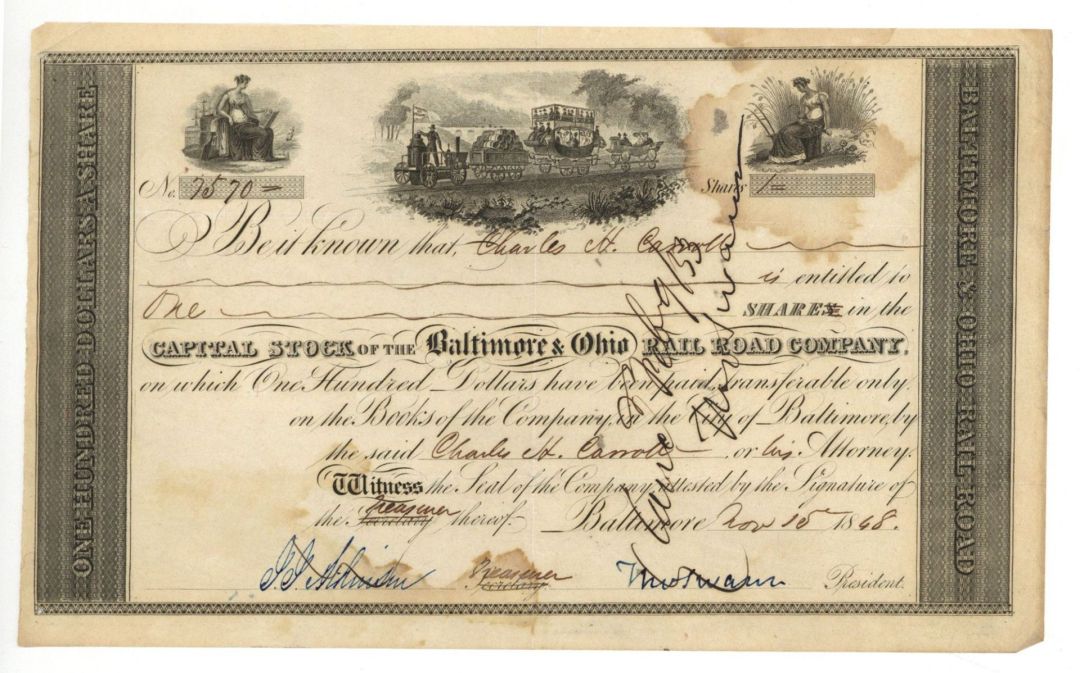 ONE HUNDRED DOLLARS A SHARE
BALTIMORE & OHIO RAIL ROAD
No. 7570
Shares 1
Be it known that, Charles H. Carroll
is entitled to
One SHARES in the
CAPITAL STOCK OF THE Baltimore & Ohio RAIL ROAD COMPANY,
on which One Hundred Dollars have been paid, transferable only
on the Books of the Company, in the City of Baltimore, by
the said Charles H. Carroll or his Attorney.
Witness the Seal of the Company attested by the Signature of
the Secretary Treasurer thereof. Baltimore Nov 15 1848.
Treasurer
Secretary
President.